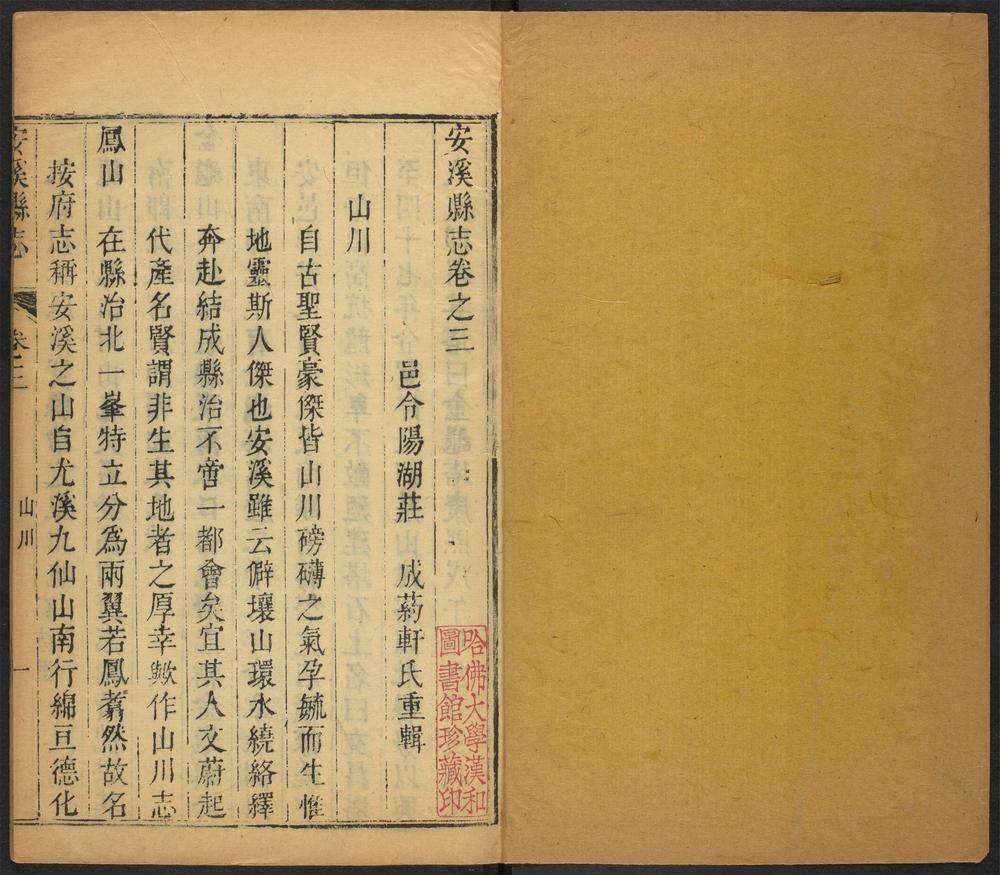 安溪縣志卷之三
邑令陽湖莊 成葯軒氏重輯
山川
自古聖賢豪傑皆山川磅礴之氣孕毓而生惟
地靈斯人傑也安溪雖云僻壤山環水繞絡繹
奔赴結成縣治不啻一都會矣宜其人文蔚起
代產名賢謂非生其地者之厚幸歟作山川志
鳳山 在縣治北一峯特立分爲兩翼若鳳翥然故名
按府志稱安溪之山自尤溪九仙山南行綿亘德化
安溪縣志 卷之三 山川 一
哈佛大學漢和
圖書館珍藏印